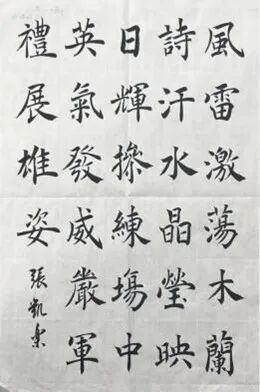 風雷激蕩木蘭
詩汗水晶瑩映
日輝摻練場中
英氣發威嚴軍
禮展雄姿
張凱樂